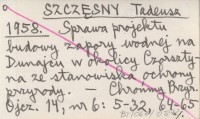 SZCZĘSNY Tadeusz
1958. Sprawa projektu
budowy zapory wodnej na
Dunajcu w okolicy Czorszty-
na ze stanowiska ochrony
przyrody. – Chrońmy Przyr.
Ojcz. 14, nr 6: 5-32, 64-65